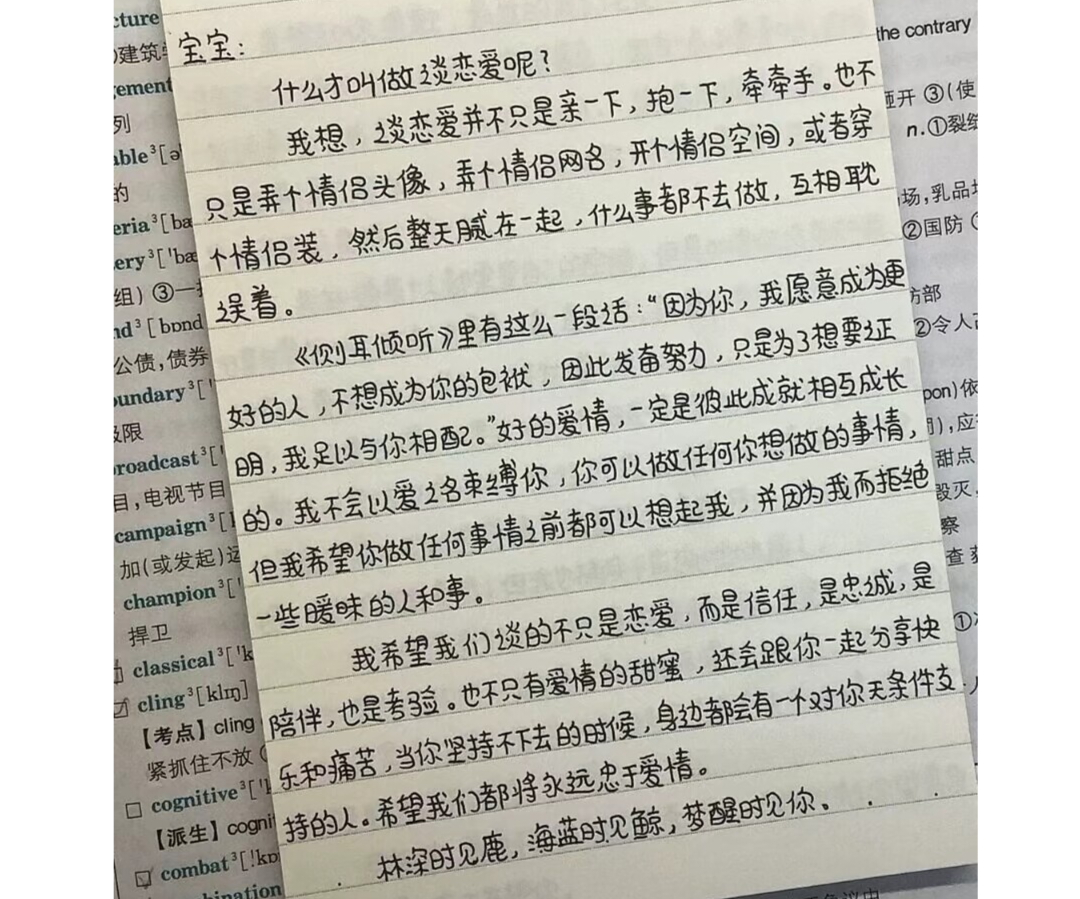 cture
建筑学
the contrary
gement
列
able³[ə
的
eria³[bæ
ery³['bæ
组) ③一
nd³[bɒnd
公债,债券
oundary³['
极限
roadcast³['
目,电视节目
campaign³[
加(或发起)运
champion³['
捍卫
classical³['k
cling³[klɪŋ]
【考点】cling
紧抓住不放
cognitive³['
【派生】cogni
combat³['kɒ
bination
宝宝:
什么才叫做谈恋爱呢?
我想,谈恋爱并不只是亲一下,抱一下,牵牵手。也不
只是弄个情侣头像,弄个情侣网名,开个情侣空间,或者穿
个情侣装,然后整天腻在一起,什么事都不去做,互相耽
误着。
《侧耳倾听》里有这么一段话:“因为你,我愿意成为更
好的人,不想成为你的包袱,因此发奋努力,只是为了想要证
明,我足以与你相配。”好的爱情,一定是彼此成就相互成长
的。我不会以爱之名束缚你,你可以做任何你想做的事情,
但我希望你做任何事情之前都可以想起我,并因为我而拒绝
一些暧昧的人和事。
我希望我们谈的不只是恋爱,而是信任,是忠诚,是
陪伴,也是考验。也不只有爱情的甜蜜,还会跟你一起分享快
乐和痛苦,当你坚持不下去的时候,身边都会有一个对你无条件支
持的人。希望我们都将永远忠于爱情。
林深时见鹿,海蓝时见鲸,梦醒时见你。
开 ③(使
n.①裂缝
场,乳品
②国防
防部
②令人
pon)依
,应
甜点
毁灭,
察
查
①